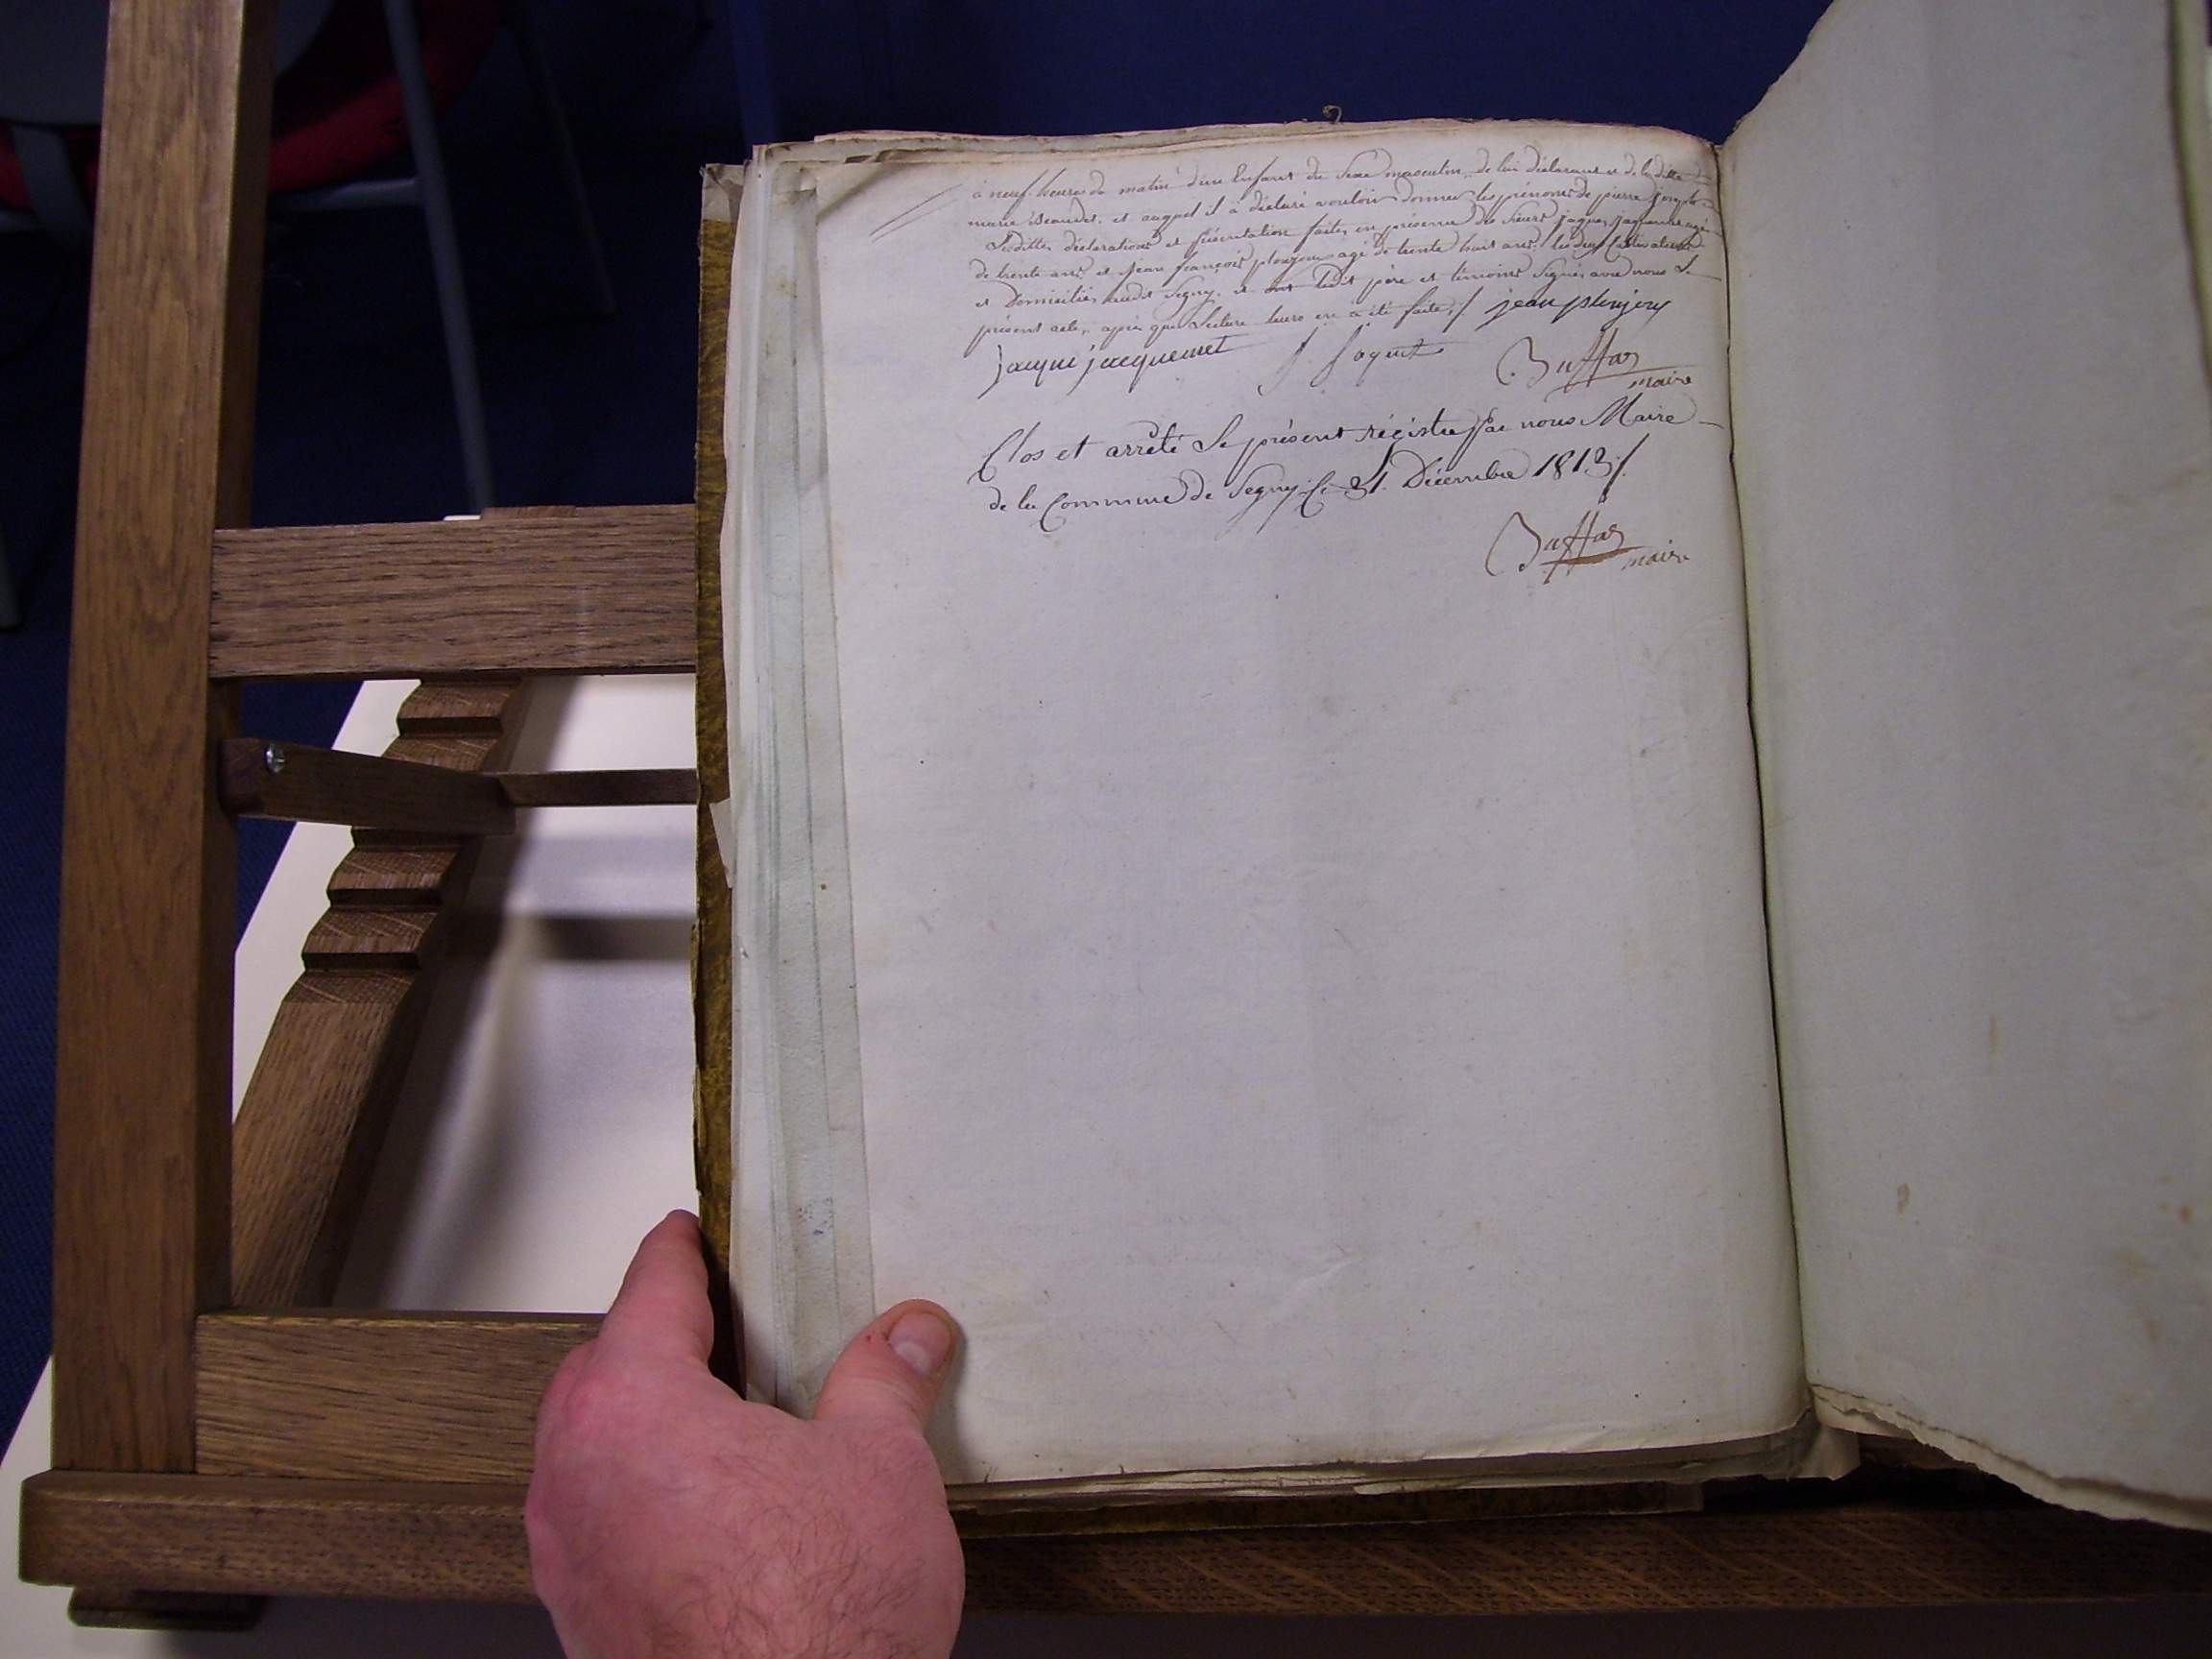 à neuf heures du matin d'un Enfant du Sexe masculin, de lui déclarant et de la ditte
marie Beaudet, et auquel il à déclaré vouloir donner les prénoms de pierre joseph
Lesdittes déclarations et présentation faites en présence des Sieurs jaques jaquemet agé
de trente ans, et jean françois plonjon agé de trente huit ans, les deux Cultivateurs
et Domiciliés audit Segny. et ont ledit père et témoins Signés avec nous Le
présent acte, après que Lecture leurs en à été faite ./ jean plonjon
jacque jacquemet
maire
Clos et arrêté Le présent régistre par nous Maire
de la Commune de Segny, Ce 31. Décembre 1813 ./.
maire